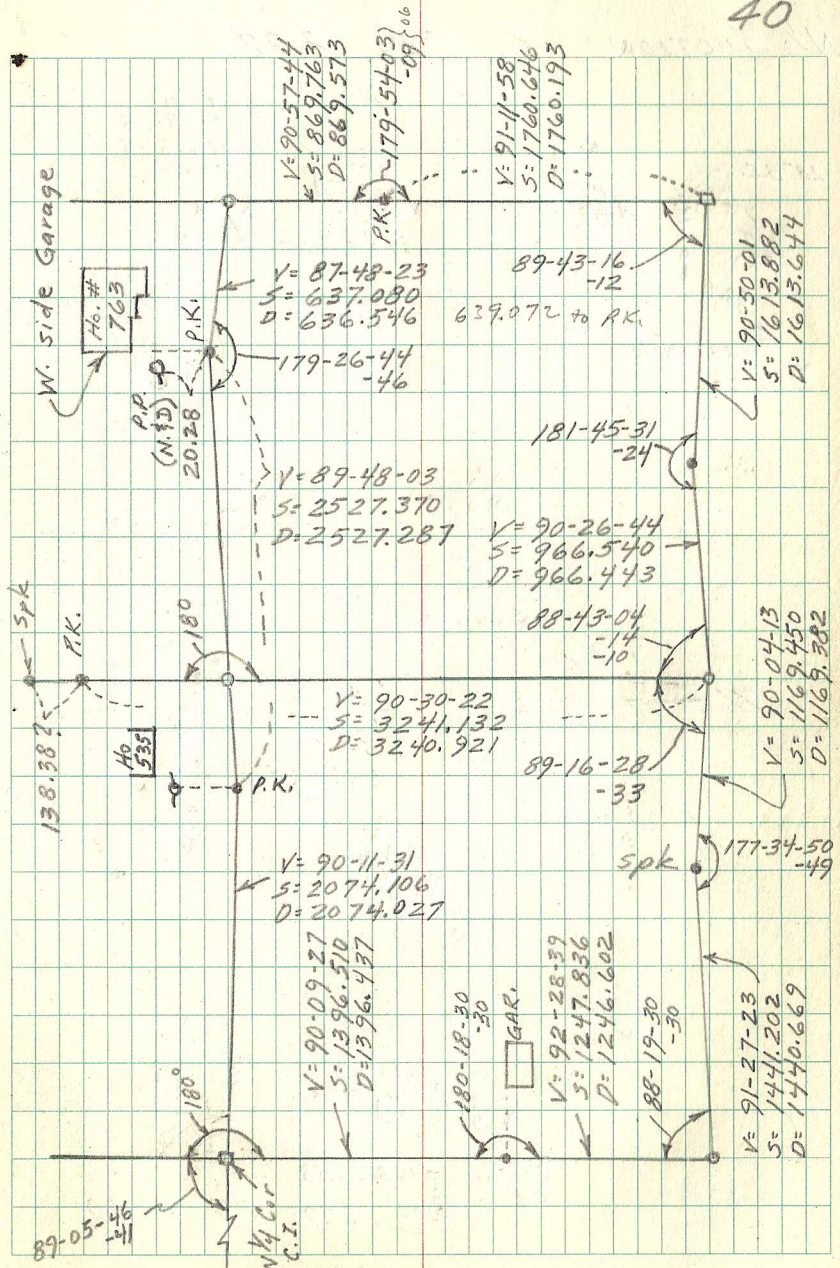 40
W. side Garage
Ho. #
763
P.P.
(N.&D)
20.28
P.K.
V= 90-57-44
S= 869.763
D= 869.573
P.K.
179-54-03
-09
06
V= 91-11-58
S= 1760.646
D= 1760.193
V= 87-48-23
S= 637.080
D= 636.546
639.072 to P.K.
89-43-16
-12
179-26-44
-46
V= 90-50-01
S= 1613.882
D= 1613.644
181-45-31
-24
V= 89-48-03
S= 2527.370
D= 2527.287
V= 90-26-44
S= 966.540
D= 966.443
Spk
P.K.
138.38?
180°
88-43-04
-14
-10
Ho
535
P.K.
V= 90-30-22
S= 3241.132
D= 3240.921
89-16-28
-33
V= 90-04-13
S= 1169.450
D= 1169.382
V= 90-11-31
S= 2074.106
D= 2074.027
Spk
177-34-50
-49
V= 90-09-27
S= 1396.510
D= 1396.437
180-18-30
-30
GAR.
V= 92-28-39
S= 1247.836
D= 1246.602
88-19-30
-30
V= 91-27-23
S= 1441.202
D= 1440.669
180°
89-05-46
-41
N¼ Cor
C.I.